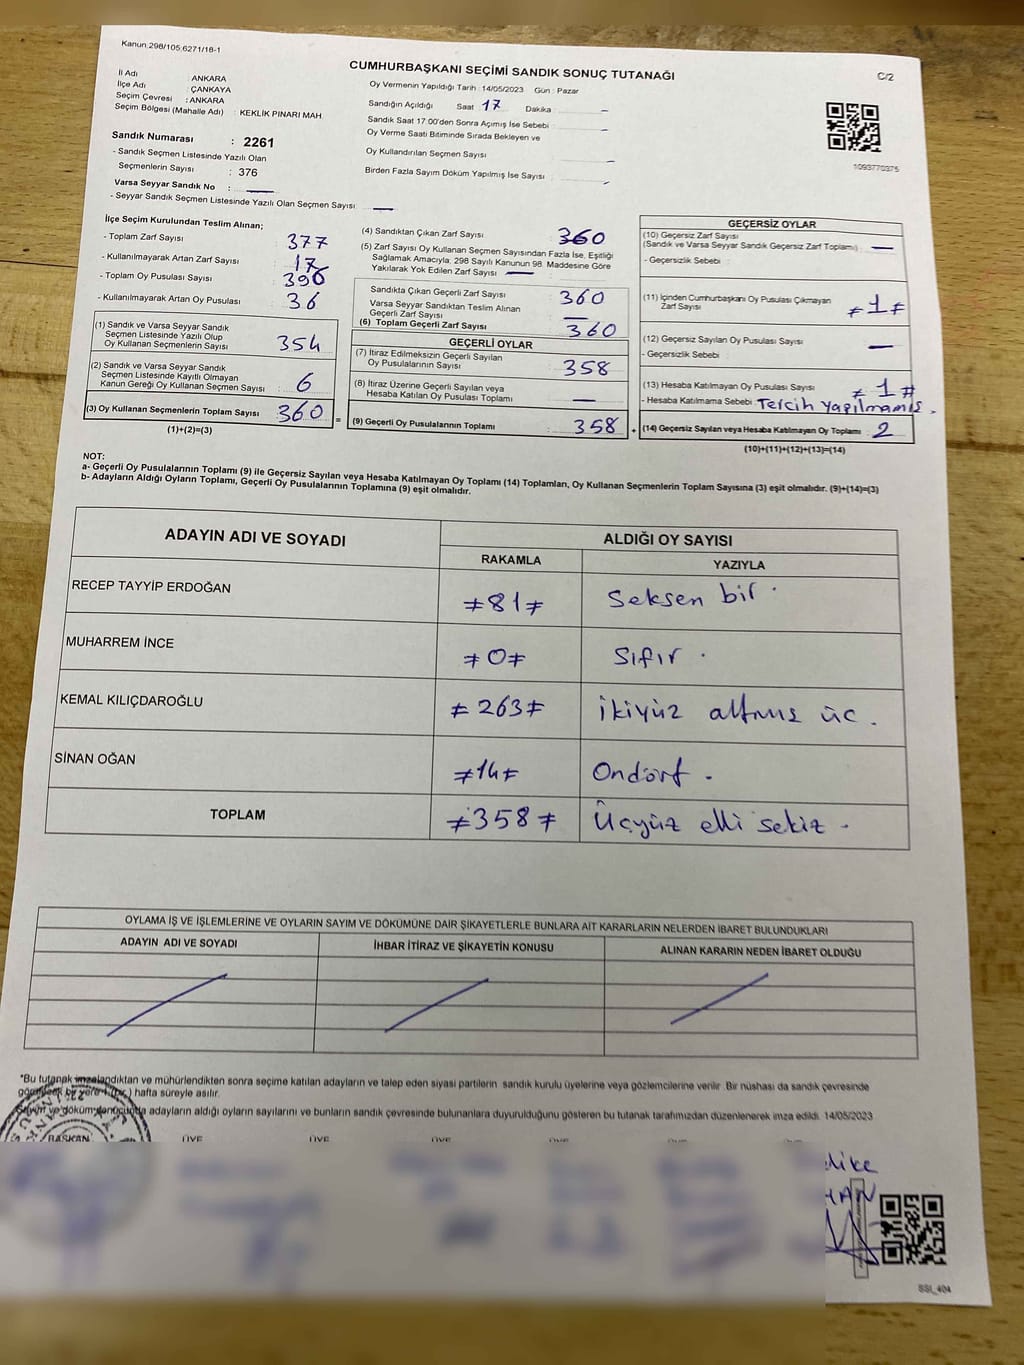 Kanun.298/105,6271/18-1
CUMHURBAŞKANI SEÇİMİ SANDIK SONUÇ TUTANAĞI
C/2
İl Adı : ANKARA
İlçe Adı : ÇANKAYA
Seçim Çevresi : ANKARA
Seçim Bölgesi (Mahalle Adı) : KEKLİK PINARI MAH.
Sandık Numarası : 2261
- Sandık Seçmen Listesinde Yazılı Olan
Seçmenlerin Sayısı : 376
Varsa Seyyar Sandık No :
- Seyyar Sandık Seçmen Listesinde Yazılı Olan Seçmen Sayısı :
Oy Vermenin Yapıldığı Tarih : 14/05/2023 Gün : Pazar
Sandığın Açıldığı Saat 17 Dakika :
Sandık Saat 17:00'den Sonra Açımış İse Sebebi :
Oy Verme Saati Bitiminde Sırada Bekleyen ve
Oy Kullandırılan Seçmen Sayısı
Birden Fazla Sayım Döküm Yapılmış İse Sayısı :
1093770375
İlçe Seçim Kurulundan Teslim Alınan;
- Toplam Zarf Sayısı : 377
- Kullanılmayarak Artan Zarf Sayısı : 17
- Toplam Oy Pusulası Sayısı : 396
- Kullanılmayarak Artan Oy Pusulası : 36
(1) Sandık ve Varsa Seyyar Sandık
Seçmen Listesinde Yazılı Olup
Oy Kullanan Seçmenlerin Sayısı : 354
(2) Sandık ve Varsa Seyyar Sandık
Seçmen Listesinde Kayıtlı Olmayan
Kanun Gereği Oy Kullanan Seçmen Sayısı : 6
(3) Oy Kullanan Seçmenlerin Toplam Sayısı : 360
(1)+(2)=(3)
=
(4) Sandıktan Çıkan Zarf Sayısı : 360
(5) Zarf Sayısı Oy Kullanan Seçmen Sayısından Fazla İse, Eşitliği
Sağlamak Amacıyla, 298 Sayılı Kanunun 98. Maddesine Göre
Yakılarak Yok Edilen Zarf Sayısı :
Sandıkta Çıkan Geçerli Zarf Sayısı : 360
Varsa Seyyar Sandıktan Teslim Alınan
Geçerli Zarf Sayısı :
(6) Toplam Geçerli Zarf Sayısı : 360
GEÇERLİ OYLAR
(7) İtiraz Edilmeksizin Geçerli Sayılan
Oy Pusulalarının Sayısı : 358
(8) İtiraz Üzerine Geçerli Sayılan veya
Hesaba Katılan Oy Pusulası Toplamı :
(9) Geçerli Oy Pusulalarının Toplamı : 358
+
GEÇERSİZ OYLAR
(10) Geçersiz Zarf Sayısı
(Sandık ve Varsa Seyyar Sandık Geçersiz Zarf Toplamı) :
- Geçersizlik Sebebi :
(11) İçinden Cumhurbaşkanı Oy Pusulası Çıkmayan
Zarf Sayısı : ≠1≠
(12) Geçersiz Sayılan Oy Pusulası Sayısı :
- Geçersizlik Sebebi :
(13) Hesaba Katılmayan Oy Pusulası Sayısı : ≠1≠
- Hesaba Katılmama Sebebi : Tercih yapılmamış.
(14) Geçersiz Sayılan veya Hesaba Katılmayan Oy Toplamı : 2
(10)+(11)+(12)+(13)=(14)
NOT:
a- Geçerli Oy Pusulalarının Toplamı (9) ile Geçersiz Sayılan veya Hesaba Katılmayan Oy Toplamı (14) Toplamları, Oy Kullanan Seçmenlerin Toplam Sayısına (3) eşit olmalıdır. (9)+(14)=(3)
b- Adayların Aldığı Oyların Toplamı, Geçerli Oy Pusulalarının Toplamına (9) eşit olmalıdır.
ADAYIN ADI VE SOYADI ALDIĞI OY SAYISI
RAKAMLA YAZIYLA
RECEP TAYYİP ERDOĞAN ≠81≠ Seksen bir.
MUHARREM İNCE ≠0≠ Sıfır.
KEMAL KILIÇDAROĞLU ≠263≠ ikiyüz altmış üç.
SİNAN OĞAN ≠14≠ Ondört.
TOPLAM ≠358≠ Üçyüz elli sekiz.
OYLAMA İŞ VE İŞLEMLERİNE VE OYLARIN SAYIM VE DÖKÜMÜNE DAİR ŞİKAYETLERLE BUNLARA AİT KARARLARIN NELERDEN İBARET BULUNDUKLARI
ADAYIN ADI VE SOYADI İHBAR İTİRAZ VE ŞİKAYETİN KONUSU ALINAN KARARIN NEDEN İBARET OLDUĞU
*Bu tutanak imzalandıktan ve mühürlendikten sonra seçime katılan adayların ve talep eden siyasi partilerin sandık kurulu üyelerine veya gözlemcilerine verilir. Bir nüshası da sandık çevresinde
görülecek bir yere 1 (bir) hafta süreyle asılır.
Sayım ve döküm sonucunda adayların aldığı oyların sayılarını ve bunların sandık çevresinde bulunanlara duyurulduğunu gösteren bu tutanak tarafımızdan düzenlenerek imza edildi. 14/05/2023
BAŞKAN ÜYE ÜYE ÜYE ÜYE ÜYE
SSI_404